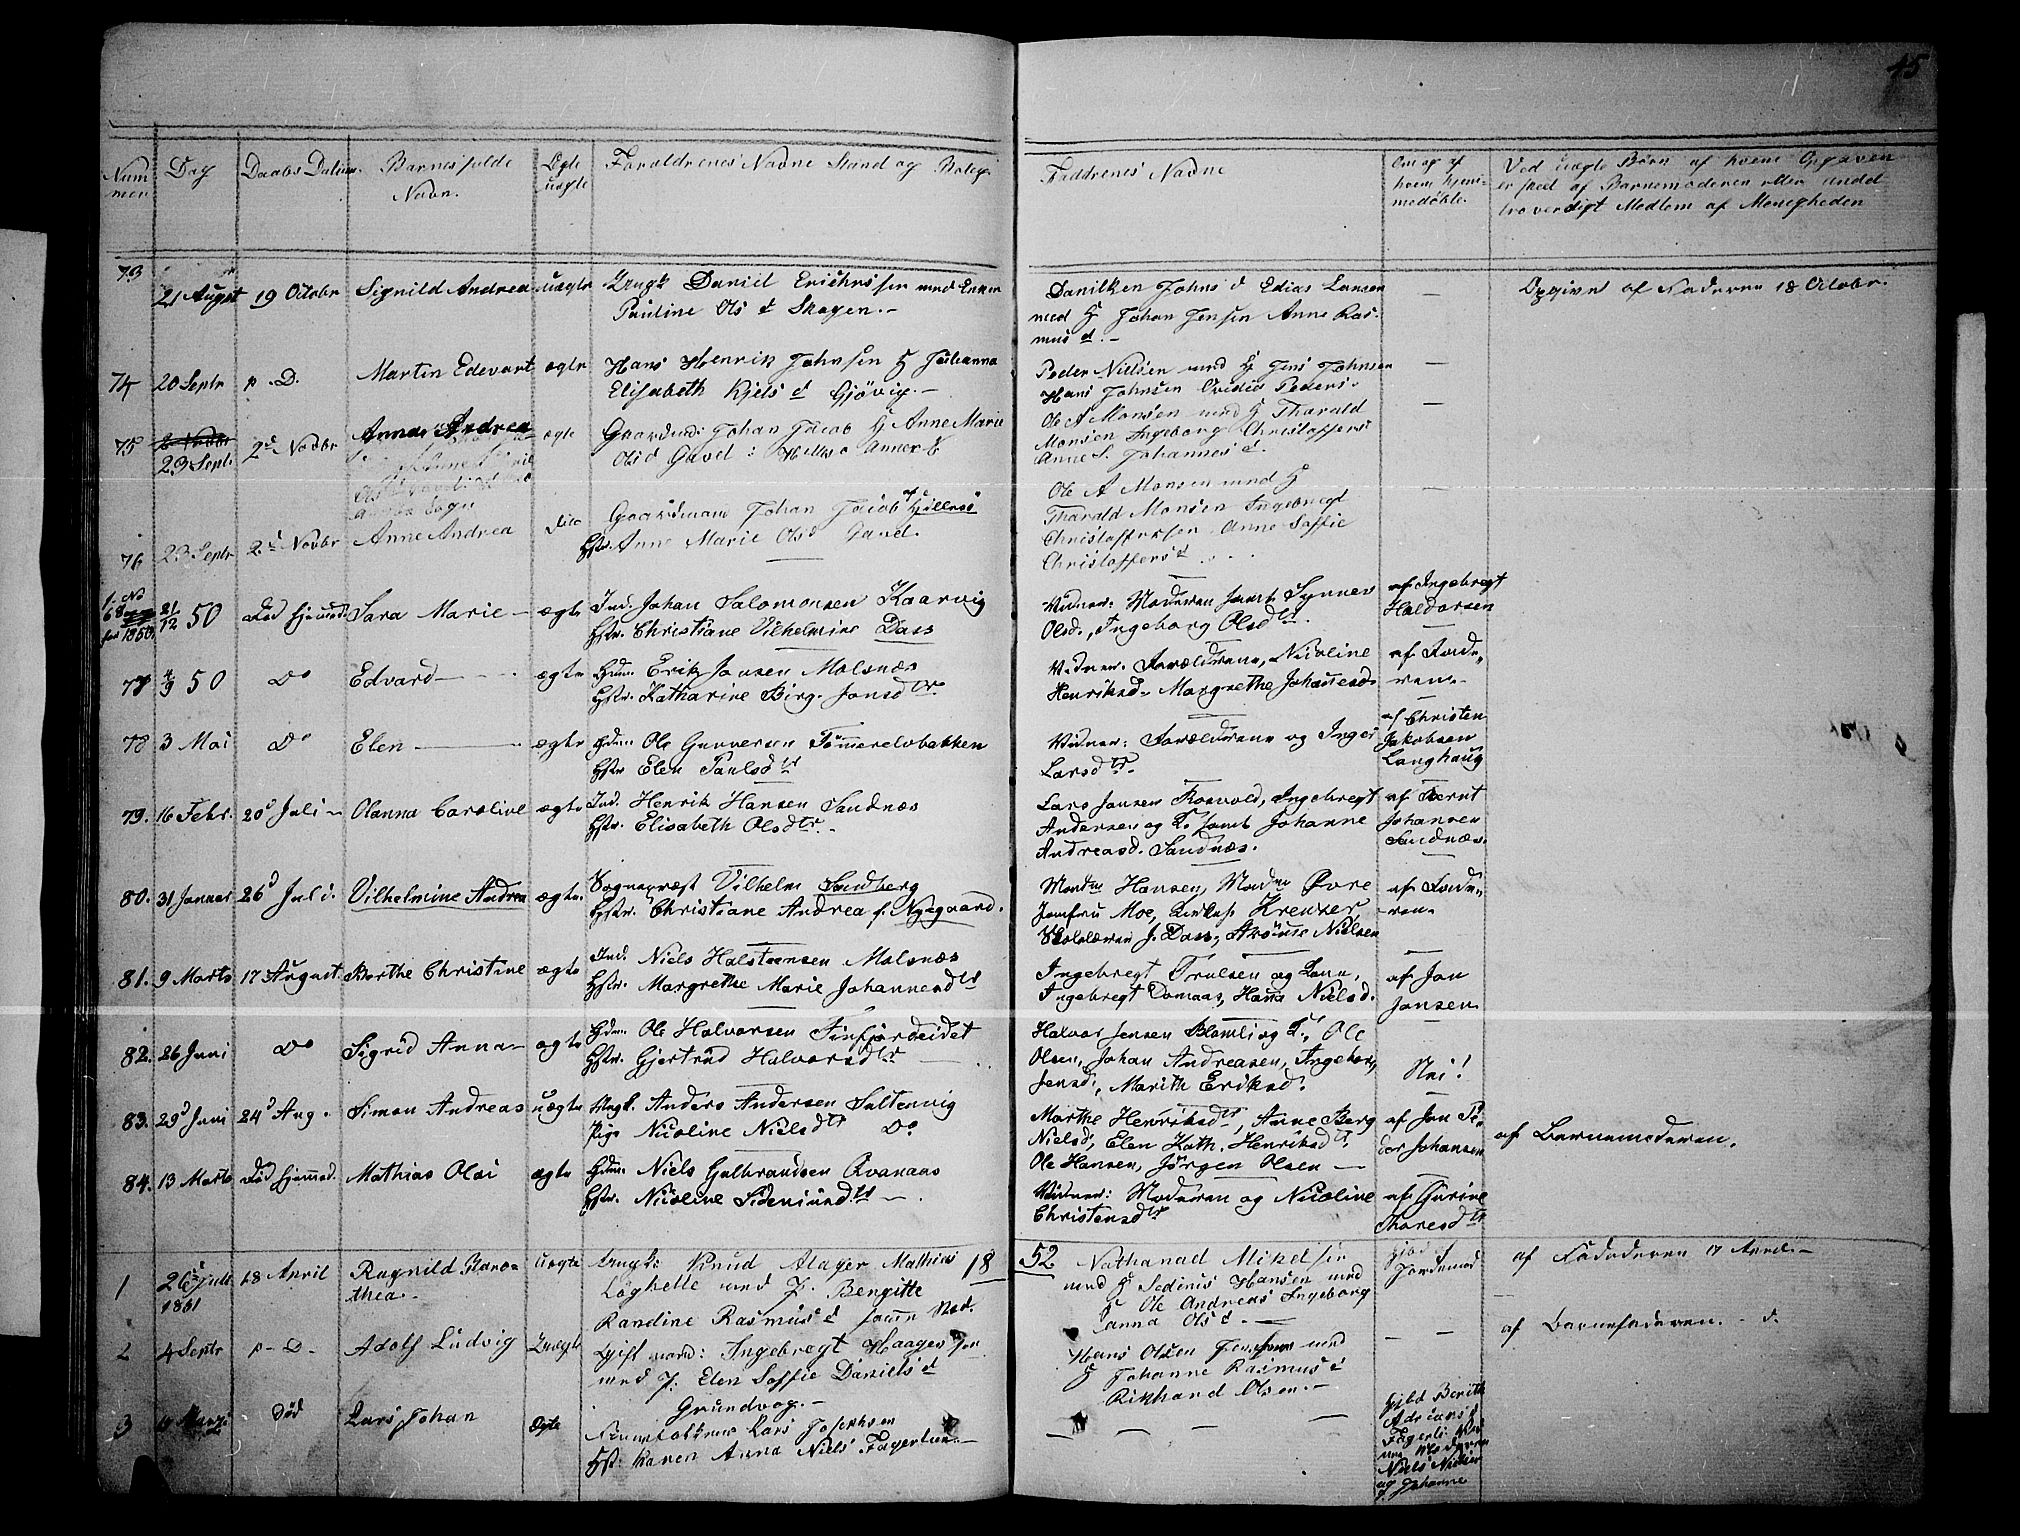 45
Num
mer
Dag
Daabs Datum
Barnes fulde
Navn.
Ægte
uægte
Forældrenes Navne Stand og Bolig
Faddrenes Navne
Om og af
hvem hjem-
medøbte.
Ved uægte Børn af hvem Opgaven
er skeet af Barnemoderen eller andet
troverdigt Medlem af Menigheden
73
21 August 19 Octobr Signild Andrea uægte Ungk Daniel Erichsen med Enken
Pauline Ols d Skogen.-
Danilken Johns d Edias Larsen —
med H Johan Jensen Anne Ras-
mus d.-
Opgivet af Faderen 18 Octobr.
74 20 Septr p.D. Martin Edevart ægte Hans Henrik Johnsen H Julianna
Elisabeth Kjels d Gjövig.-
Peder Nielsen med H Jens Johnsen —
Hans Johnsen Peders.
75 2 Novbr
23 Sept. 2d Novbr Anna Andrea ægte Gaardmd: Johan Jacob H Anne Marie
Ols d Gavel:
Ole A Monsen med H Tharald —
Monsen Ingeborg Christoffers
Anne S. Johannes d.
76 23 Septr 2d Novbr Anne Andrea dito Gaardmand Johan Jacob
Hstr. Anne Marie Olsd Gavel.
Ole A Monsen med H —
Tharald Monsen Ingebregt
Christoffersen Anne Soffie
Christoffers d
No
68
for 1850. 21/12 50 død hjemmed. Sara Marie — ægte Ind. Johan Salomonsen Kaarvig
Hstr. Christiane Vilhelmine Dass
Vidner: Moderen samt Synnev
Olsd., Ingeborg Olsdtr.
af Ingebregt
Haldorsen
77 4/9 50 Do Edvard — ægte Gdm. Erik Jonsen Molsnæs
Hstr. Katharine Birg. Jonsdtr
Vidner: Forældrene, Nicoline
Henriksd. Margrethe Johannesd.
af Fade-
ren.
78 3 Mai Do Elen — ægte Gdm Ole Gunersen Tömmerelvbakken
Hstr Elen Paulsdtr
Vidner: Forældrene og Inger
Larsdtr.
af Christen
Jakobsen
Langhaug
79. 16 Febr. 20d Juli — Olanna Caroline ægte Ind. Henrik Hansen Sandnæs
Hstr. Elisabeth Olsdtr.
Lars Jansen Rosvold, Ingebregt
Andersen og K. samt Johanne
Andreasd. Sandnæs.
af Bernt
Johansen
Sandnæs.
80. 31 Januar 26d Juli. Vilhelmine Andrea ægte. Sognepræst Vilhelm Sandberg
Hstr. Christiane Andrea f. Nysgaard.
Madm Hansen, Madm Övre
Jomfru Moe, Kreuser,
Skolelærer J. Dass, Nielsen
af Fade-
ren.
81. 9 Marts 17 August. Berthe Christine ægte Ind. Niels Halstensen Molsnæs
Hstr. Margrethe Marie Johannesdtr
Ingebregt Trulsen og Kone,
Ingebregt Domaas, Hans Nielsd.
af Jon
Jonsen
82. 26 Juni Do Sigrid Anna — ægte Gdm. Ole Halvorsen Finfjordeidet
Hstr. Gjertrud Halvorsdtr —
Halvor Jensen Blomli og K., Ole
Olsen, Johan Andreasen, Ingebor.
Jensd., Marith Eriksd.
Nei!
83. 29d Juni 24d Aug. Simon Andreas uægte Ungk. Anders Andersen Saltenvig
Pige Nicoline Nielsdtr Do
Marthe Henriksdtr, Anne Berg
Nielsd, Elen Kath. Henriksdtr,
Ole Hansen, Jörgen Olsen —
af Jon Pe-
der Johansen
af Barnemoderen.
84. 13 Marts död hjemmed. Mathias Olai ægte Gdm. Niels Gulbrandsen Qvanaas
Hstr. Nicoline Sidenjunddtr —
Vidner: Moderen og Nicoline
Christensdtr
af Gurine
Thoresdtr
1852
1 26d Juli
1851 18 April Ragnild Baro-
thea. Uægte Ungk: Knud Atager Mathias
Löghelle med P. Bengitte
Randine Rasmus d
Nathanael Mikelsen
med H Sedinis Hansen med
H Ole Andreas Ingeborg
Anna Ols d. —
Jordemod
af Fadderen 17 April.-
2 4 Septr p-D- Adolf Ludvig Uægte Gift mand: Ingebregt Haagensen
med P: Elen Soffie Daniels d
Grundvog.-
Hans Olsen med
H Johanne Rasmus d
Rikhard Olsen.-
— —
af Barnefaderen. - d.
3 Död Lars Johan Ægte Lars Josephsen
Hst: Karen Anna Niels Fagerlien.-
— — —
Berith
Adrians d
Fagerli
Niels Nielsen
og Johanne